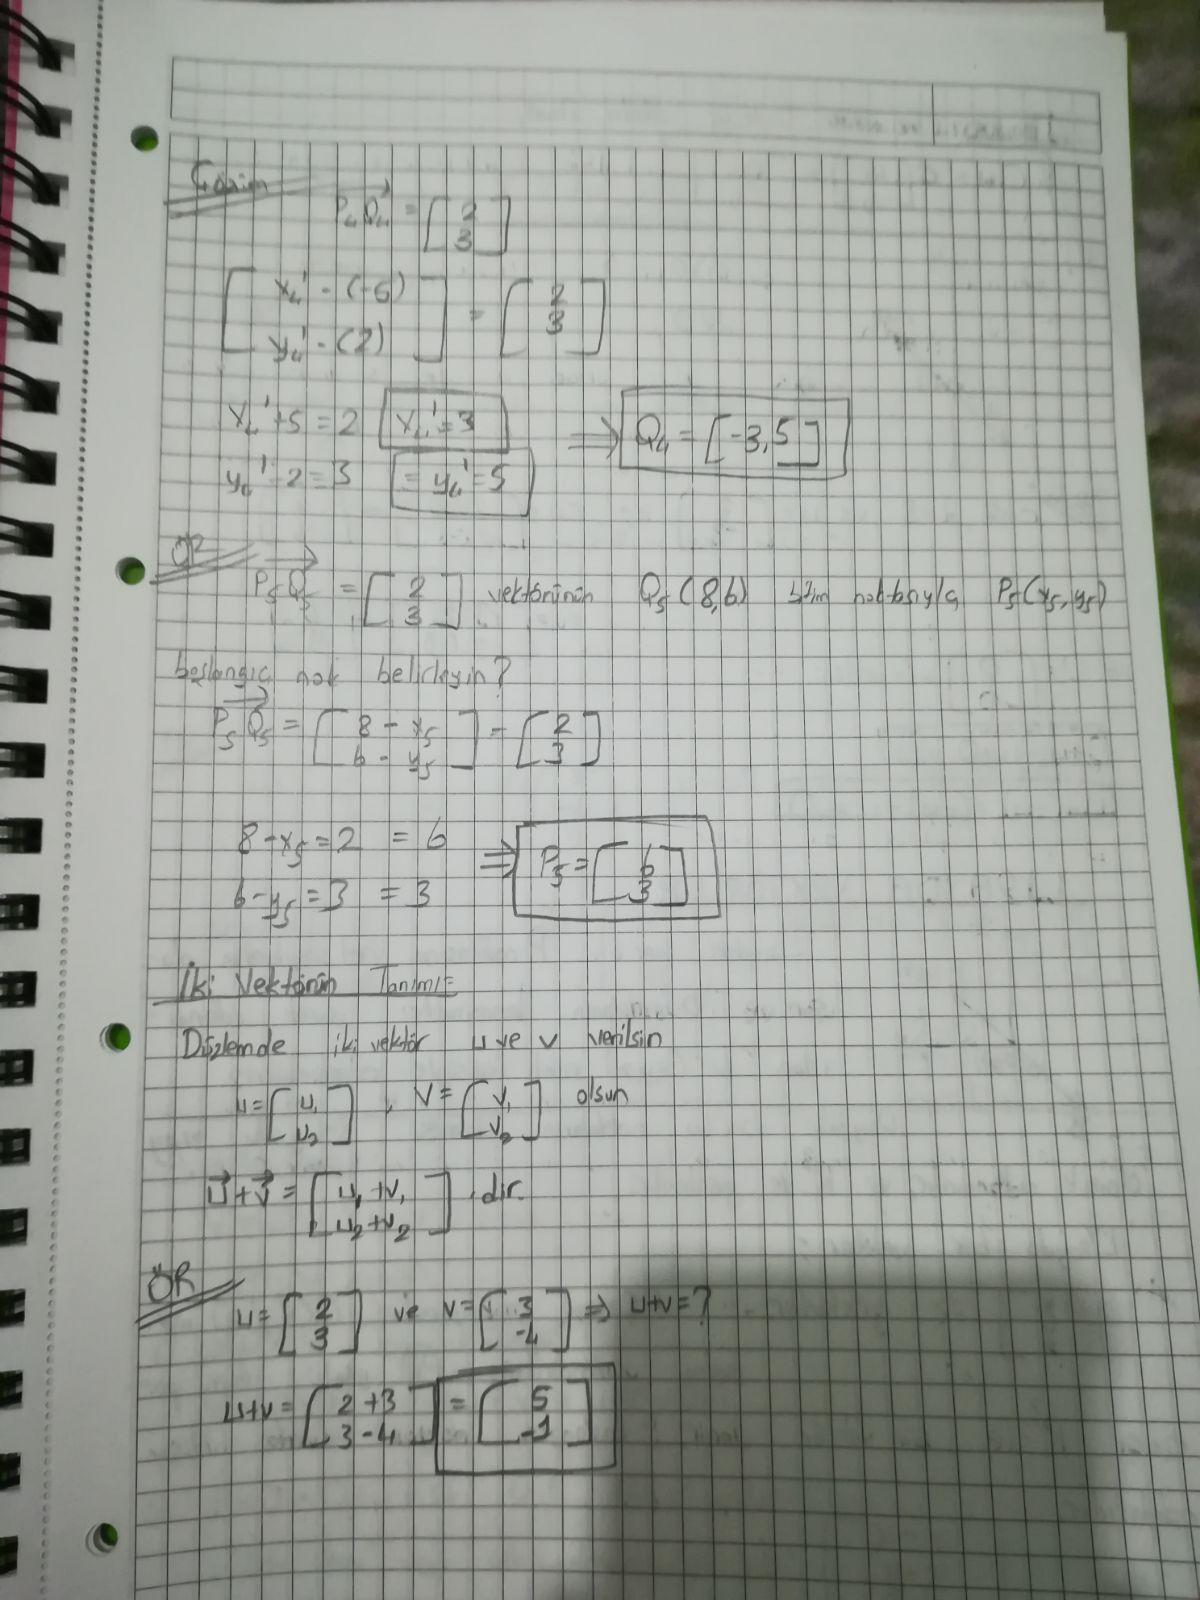 Çözüm
P₄Q₄ = [2 3]
[x₄' - (-6) y₄' - (2)] = [2 3]
x₄' + 5 = 2 x₄' = 3 ⇒ Q₄ = [-3, 5]
y₄' - 2 = 3 = y₄' = 5
ÖR
P₅Q₅ = [2 3] vektörünün Q₅(8,6) bitim noktasıyla P₅(x₅, y₅)
başlangıç nok belirleyin?
P₅Q₅ = [8 - x₅ 6 - y₅] = [2 3]
8 - x₅ = 2 = 6 ⇒ P₅ = [6 3]
6 - y₅ = 3 = 3
İki Vektörün Tanımı=
Düzlemde iki vektör u ve v verilsin
u = [u₁ u₂], v = [v₁ v₂] olsun
u + v = [u₁ + v₁ u₂ + v₂] dir.
ÖR
u = [2 3] ve v = [3 -4] ⇒ u+v = ?
u+v = [2 + 3 3 - 4] = [5 -1]